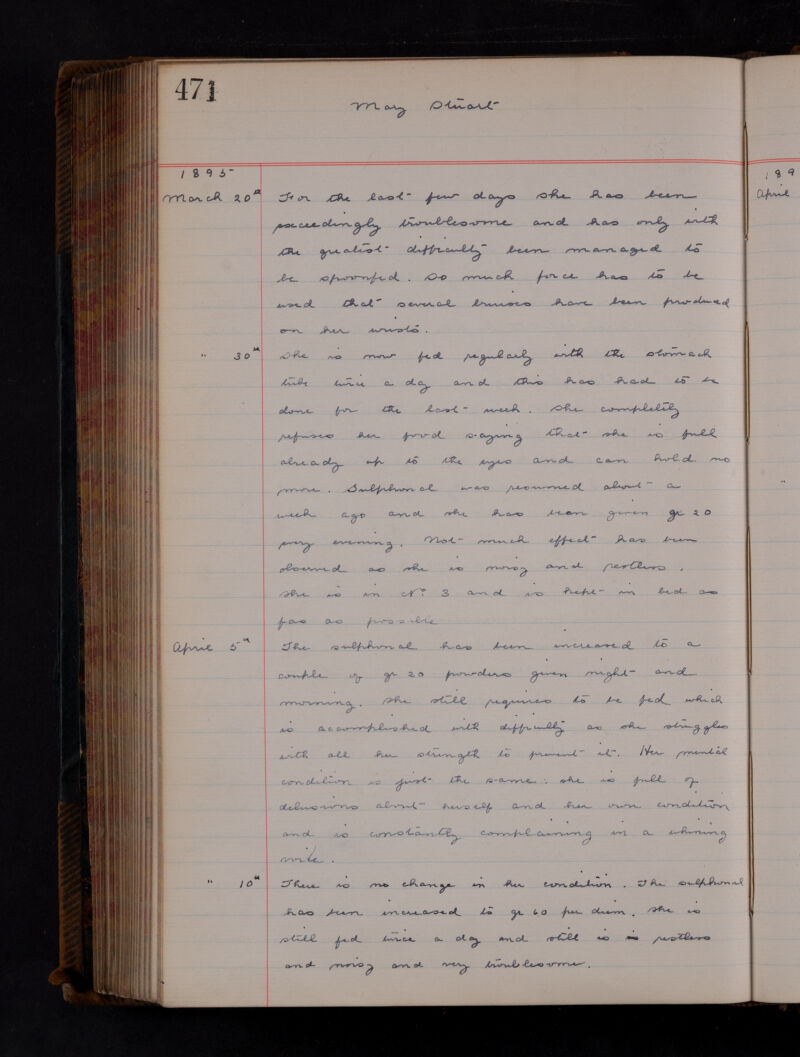 471
Mary Stuart
1895
March 20th For the last few days she has been
exceedingly troublesome and has only with
the greatest difficulty been managed to
be spoonfed. So much force has to be
used that several bruises have been produced
on her wrists.
" 30th She is now fed regularly with the stomach
tube twice a day and this has had to be
done for the last week. She completely
refuses her food saying that she is full
already up to the eyes and can hold no
more. Sulphonal was resumed about a
week ago and she has been given gr 20
every evening. Not much effect has been
observed as she is noisy and restless.
She is in No 3 and is kept in bed as
far as possible
April 5th The sulphonal has been increased to a
couple of gr 20 powders given night and
morning. She still requires to be fed which
is accomplished with difficulty as she struggles
with all her strength to prevent it. Her mental
condition is just the same: she is full of
delusions about herself and her own condition
and is constantly complaining in a whining
voice.
" 10th There is no change in her condition. The sulphonal
has been increased to gr 60 per diem. She is
still fed twice a day and still is restless
and noisy and very troublesome.
189
April
"